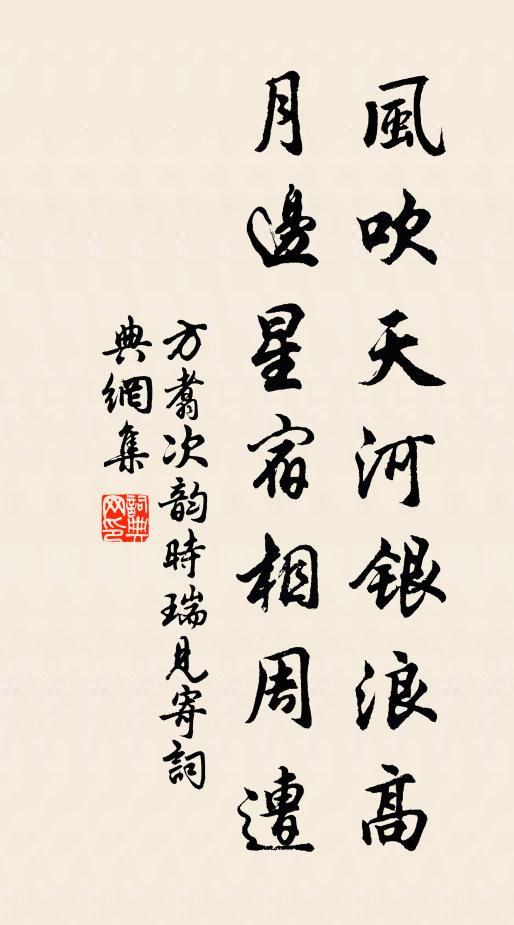 風吹天河銀浪高
月邊星宿相周遭
方翥次韵時瑞見寄詞
典網集
詞典網印